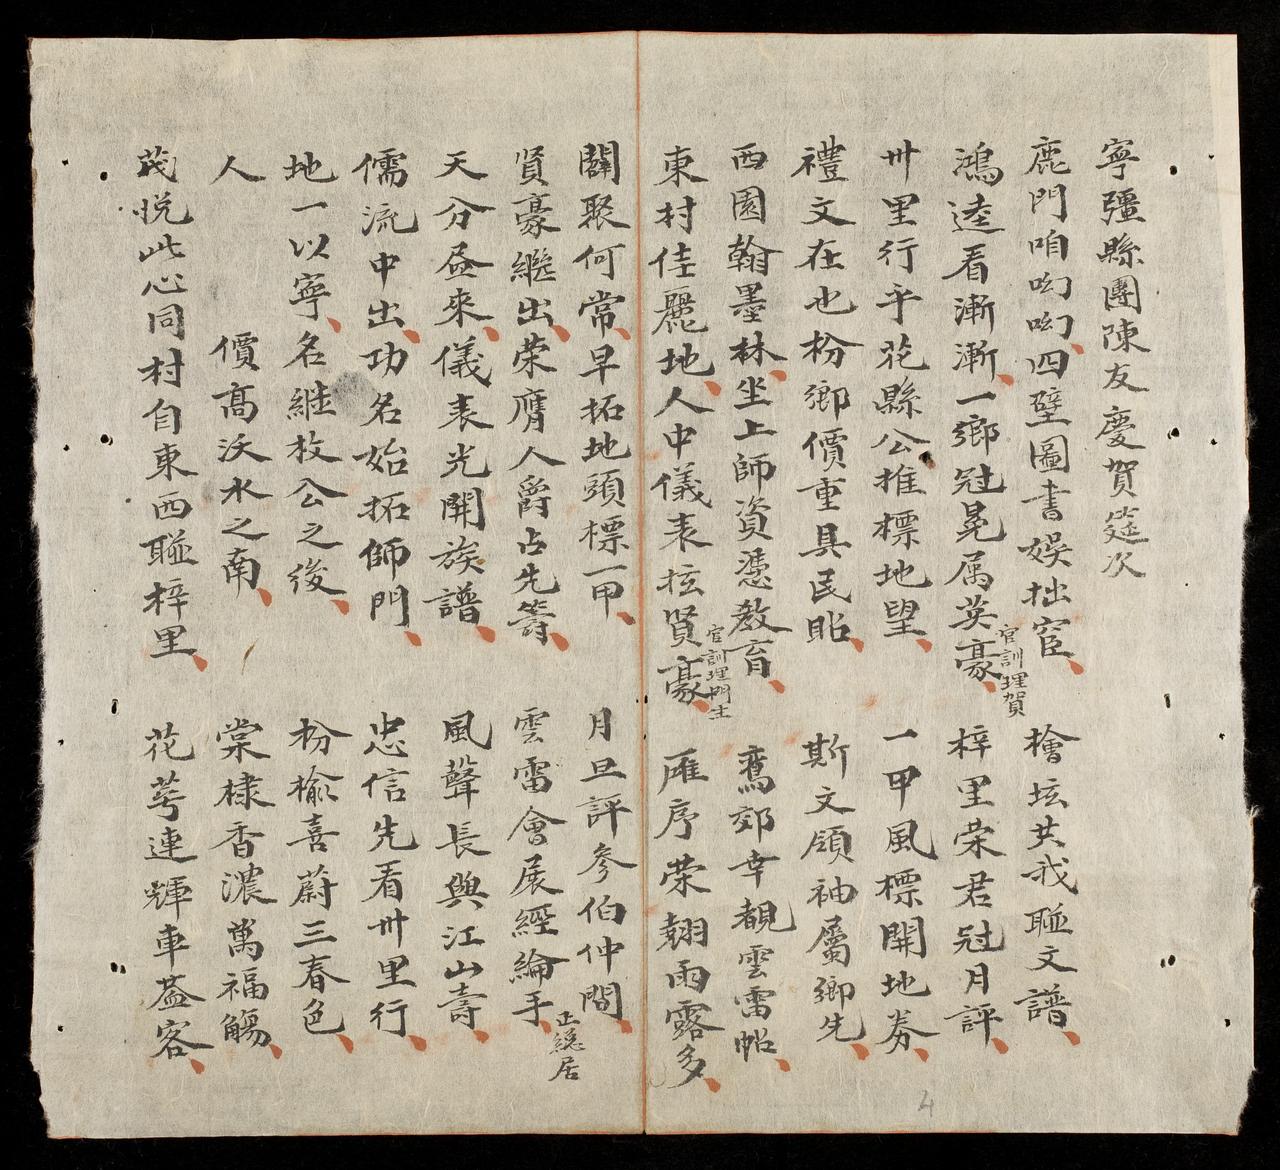 寧彊縣團陳友慶賀筵次
鹿門咱呦呦四壁圖書娱拙宧 檜坛共我聯文譜
鴻逵看漸漸一鄉冠冕属英豪 官訓理賀 梓里荣君冠月評
卅里行乎花縣公推標地望 一甲風標開地券
禮文在也枌鄉價重具民眙 斯文領袖屬鄉先
西園翰墨林坐上師資憑教育 官訓理門生 鴌郊幸覩雲雷帖
東村佳麗地人中儀表抎賢豪 雁序荣翹雨露多
關聚何常早拓地頭標一甲 月旦評參伯仲間 正總居
賢豪繼出荣膺人爵占先籌 雲雷會展經綸手
天分昼來儀表光開族譜 風聲長與江山壽
儒流中出功名始拓師門 忠信先看卅里行
地一以寧名継枚公之後 枌榆喜蔚三春色
人 價高沃水之南 棠棣香濃萬福觴
茂悦此心同村自東西聯梓里 花萼連輝車葢客
4